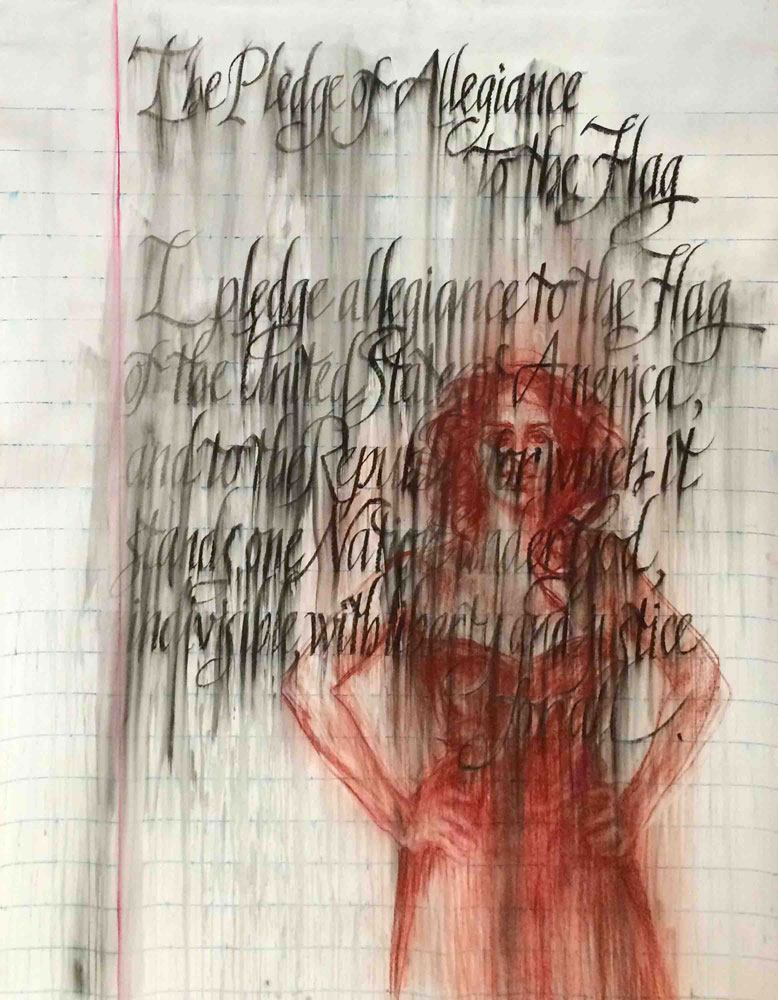 The Pledge of Allegiance
to the Flag
I pledge allegiance to the Flag
of the United States of America,
and to the Republic for which it
stands, one Nation under God,
indivisible, with liberty and justice
for all.